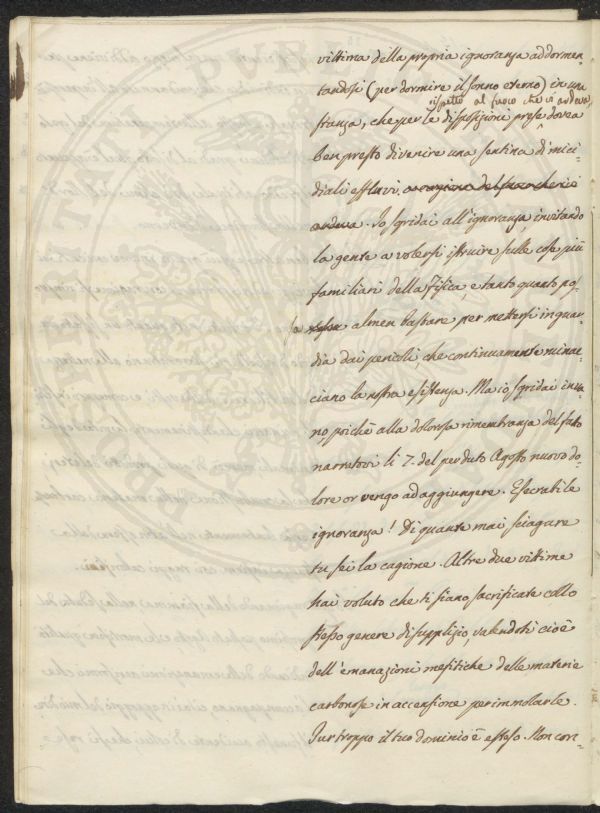 vittima della propria ignoranza addormen-
tandosi (per dormire il sonno eterno) in una
rispetto al fuoco che vi ardeva,
stanza, che per le disposizioni prese dovea
ben presto divenire una sentina di mici-
diali effluvi. a cagione del fuoco che vi
ardeva. Io sgridai all'ignoranza, invitando
la gente a volersi istruire sulle cose più
familiari della Fisica, e tanto quanto pos-
sa almen bastare per mettersi in guar-
dia dai pericoli, che continuamente minac-
ciano la nostra esistenza. Ma io sgridai inva-
no poichè alla dolorosa rimembranza del fato
narratovi li 7. del perduto Agosto nuovo do-
lore or vengo ad aggiungere. Esecrabile
ignoranza! Di quante mai sciagure
tu sei la cagione. Altre due vittime
hai voluto che ti siano sacrificate collo
stesso genere di supplizio, valendoti cioè
dell'emanazioni mefitiche delle materie
carbonose in accensione per immolarle.
Pur troppo il tuo dominio è esteso. Non con-